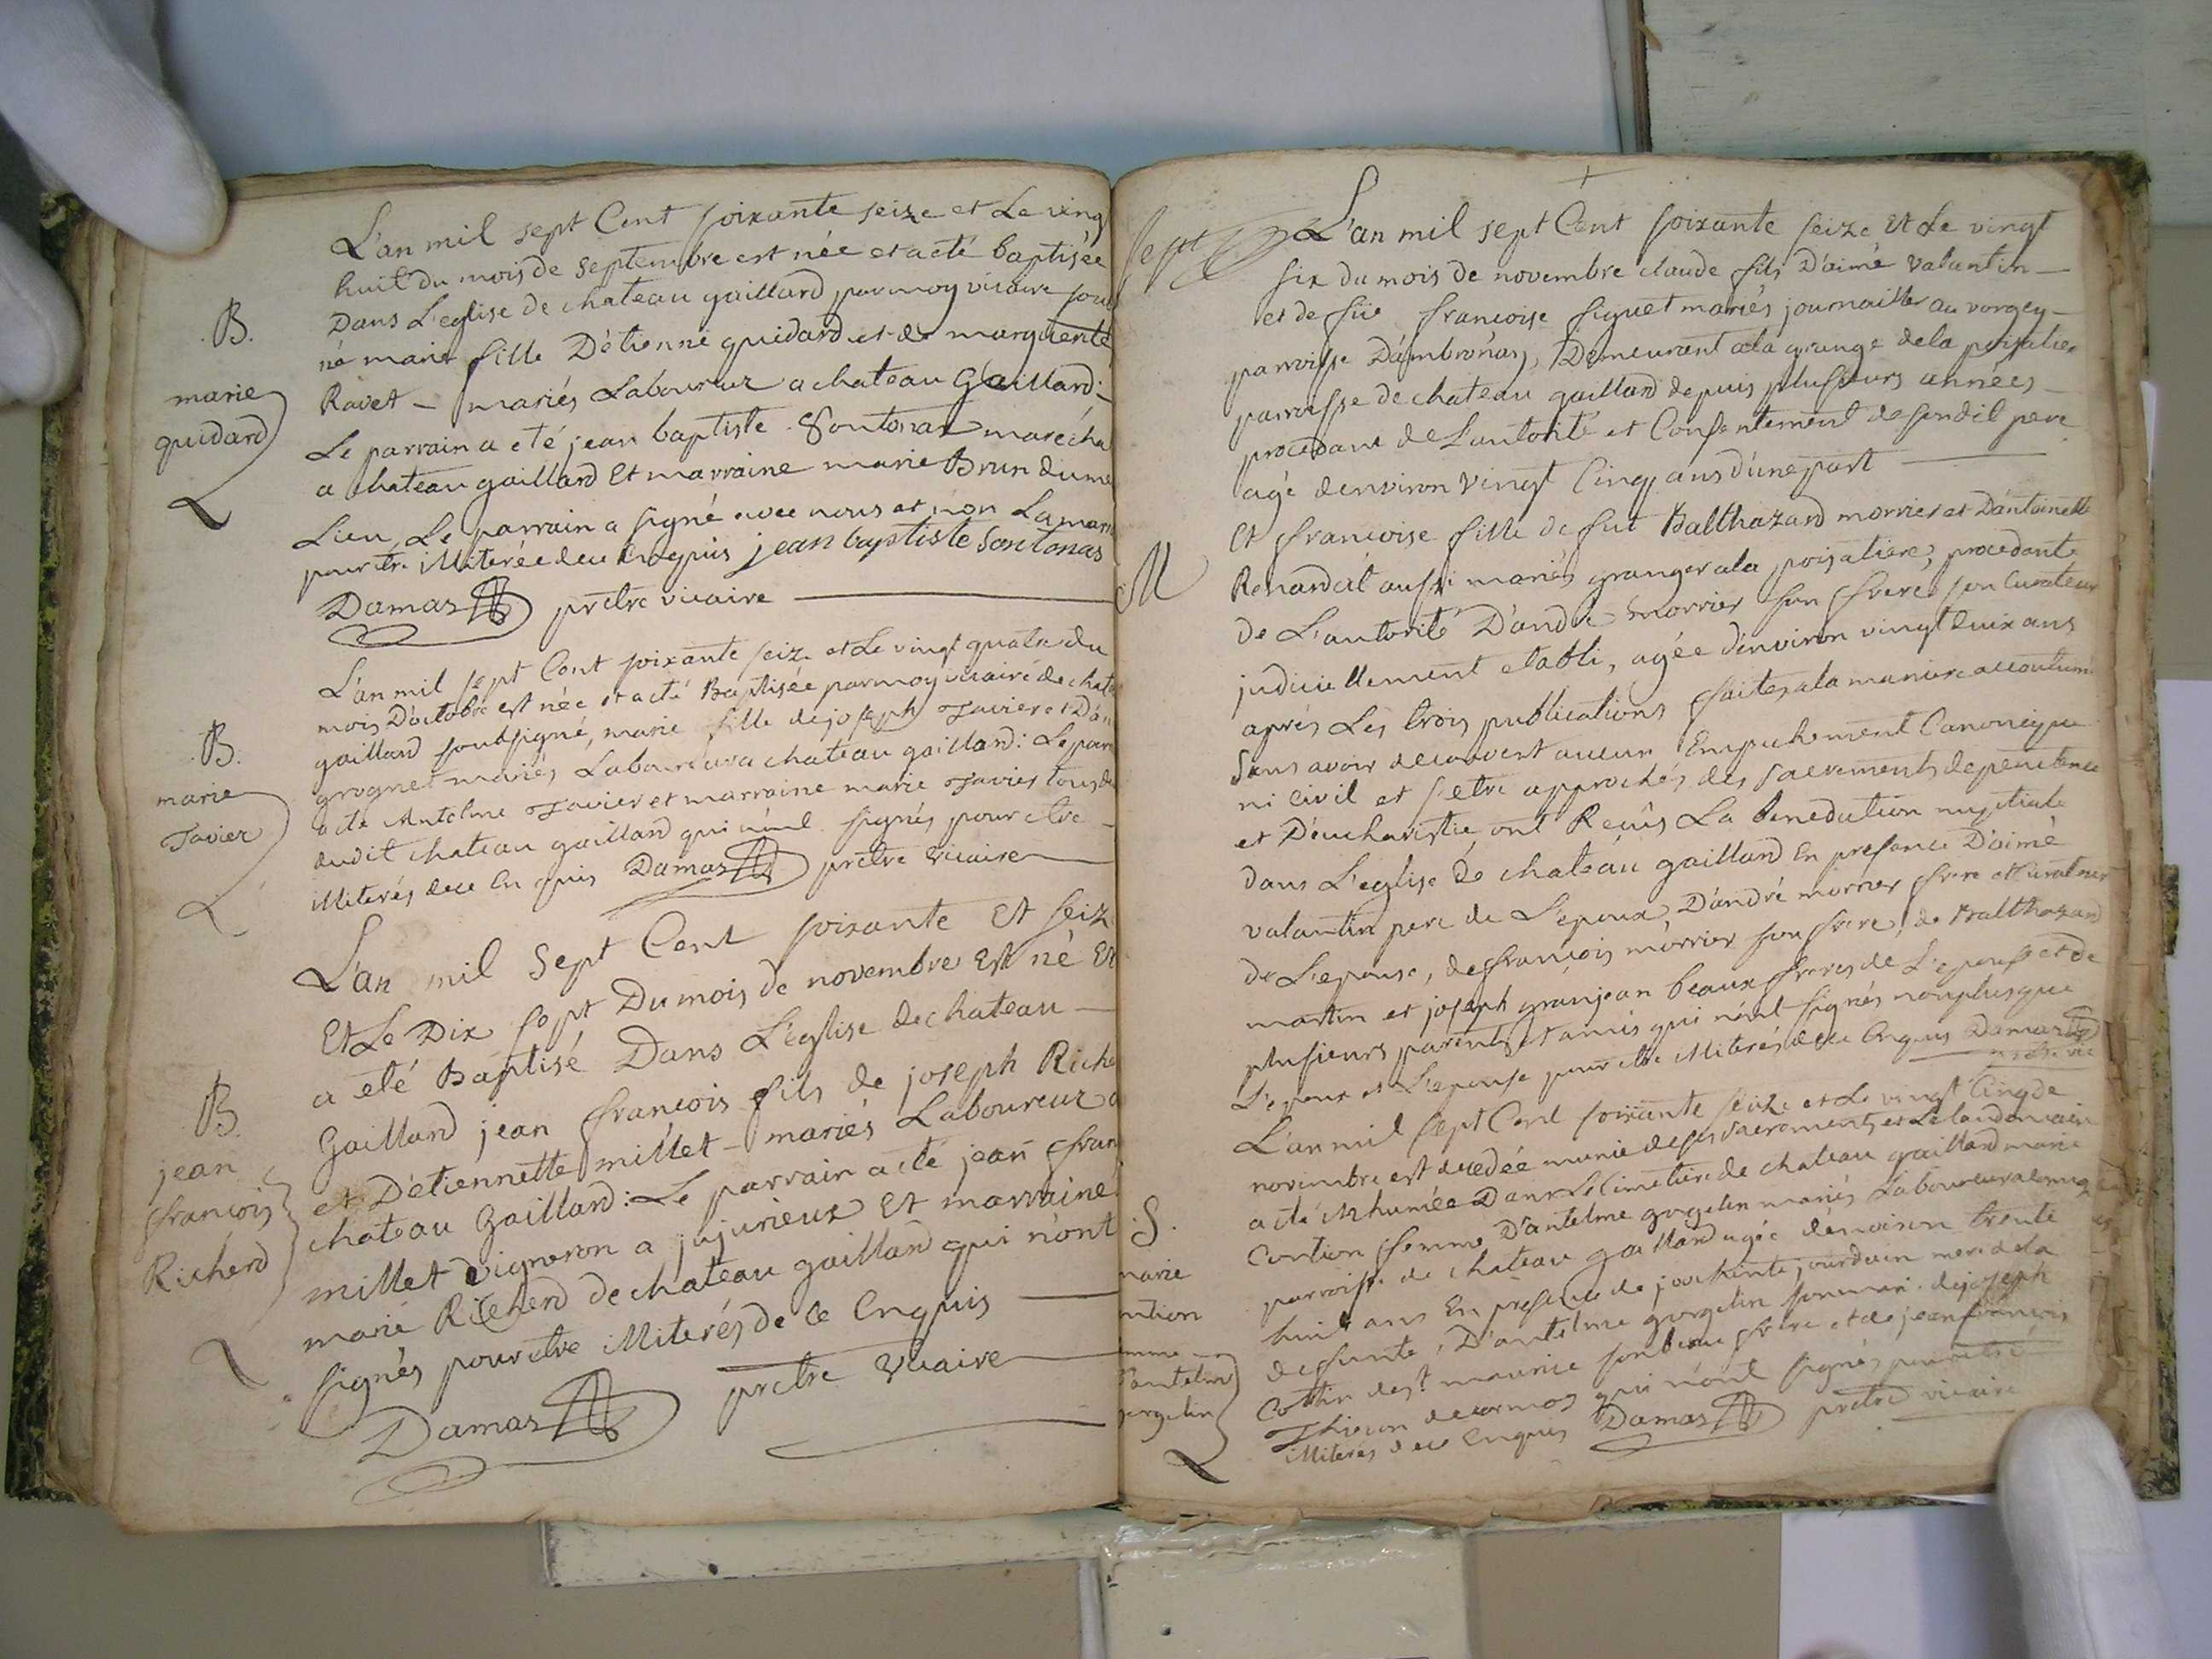 L'an mil sept Cent soixante seize et Le ving
huit Du mois de septembre est née et a eté baptisée
Dans L'eglise de chateau gaillard par moy vicaire sou
né marie fille D'étienne guidard et de marguerite
Ravet - mariés Laboureur a chateau Gaillard:
Le parrain a eté jean baptiste Fontonas marécha
a chateau gaillard Et marraine marie Brun du me
Lieu, Le parrain a signé avec nous et non La mar
pour etre illiterée de ce Enquis jean baptiste fontonas
Damas prêtre vicaire
B.
marie
guidard
L'an mil sept Cent soixante seize et Le vingt quatre du
mois D'octobre est née et a eté Baptisée par moy vicaire de chate
gaillard soubsigné, marie fille de joseph Tavier et D'an
grognet mariés Laboureur a chateau gaillard: Le parr
a eté Antelme Tavier et marraine marie Tavier tous de
dudit chateau gaillard qui n'ont signés pour etre
illiterés de ce Enquis Damas prêtre vicaire
B.
marie
Tavier
L'an mil Sept Cent soixante Et seiz
Et Le Dix sept Du mois de novembre Est né Et
a eté Baptisé Dans L'eglise de chateau
Gaillard jean françois fils de joseph Riche
et D'etiennette millet - mariés Laboureur a
chateau Gaillard: Le parrain a eté jean fran
millet vigneron a jujurieux Et marraine
marie Richerd de chateau gaillard qui n'ont
signés pour etre illiterés de ce Enquis
Damas prêtre vicaire
B.
jean
françois
Richerd
Sept
L'an mil sept Cent soixante seize Et Le vingt
six du mois de novembre claude fils D'aimé valantin
et de füe francoise siguet mariés journailler au vorgey
parroisse D'ambronas, Demeurant a la grange de la poisatier
parroisse de chateau gaillard depuis plusieurs années
procedant de L'autorité et Consentement de son dit pere
agé d'environ vingt Cinq ans d'une part
Et francoise fille de fut Balthazard morrier et D'antoinette
Renardat aussi mariés granger a la poisatiere, procedante
de L'autorité D'andré morrier son frere son Curateur
judiciellement etabli, agée d'environ vingt deux ans
aprés Les trois publications faites a la maniere accoutumé
sans avoir decouvert aucun Empechement Canonique
ni civil et s'etre approchés des sacrements de penitence
et D'eucharistie, ont Reçûs La Benediction nuptiale
dans L'eglise de chateau gaillard En presence D'aimé
valantin pere de L'epoux, D'andré morrier frere et Curateur
de L'epouse, de françois morrier son frere, de Balthazard
martin et joseph granjean beaux freres de L'epouse et de
plusieurs parents et amis qui n'ont signés nonplus que
L'epoux et L'epouse pour etre illiterés de ce Enquis Damas
prêtre vic
M
L'an mil sept Cent soixante seize et Le vingt Cinq de
novembre est decedée munie de ses sacrements et Le landemain
a eté inhumée Dans Le Cimetiere de chateau gaillard marie
Contion femme D'antelme gorgelin mariés Laboureur
parroisse de chateau gaillard agée d'environ trente
huit ans En presence de jourdain mere de la
defunte, D'antelme gorgelin son mari, de joseph
Cottin de st maurice son beau frere et de jean francois
Thieson de cormoz qui n'ont signés pour etre
illiterés de ce Enquis Damas prêtre vicaire
S.
marie
ntion
mme
antelme
gorgelin